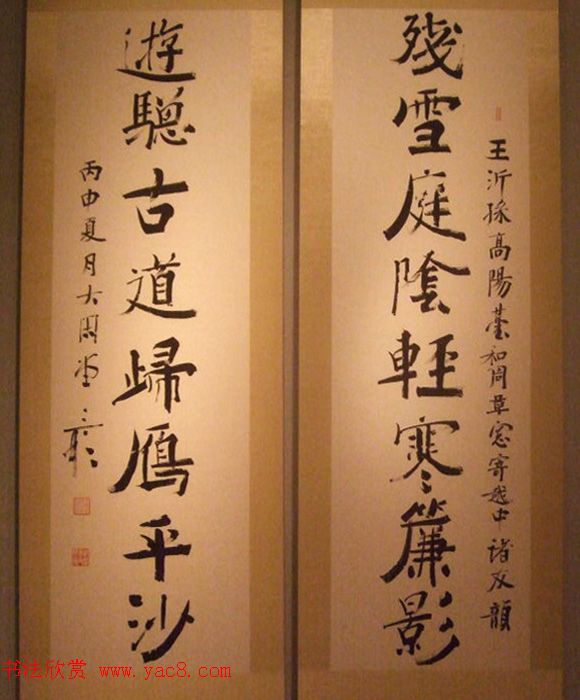 王沂孫高陽臺和周草窗寄越中諸友韻
殘雪庭陰輕寒簾影
遊驄古道歸鴈平沙
丙申夏月大
书法欣赏 www.yac8.com